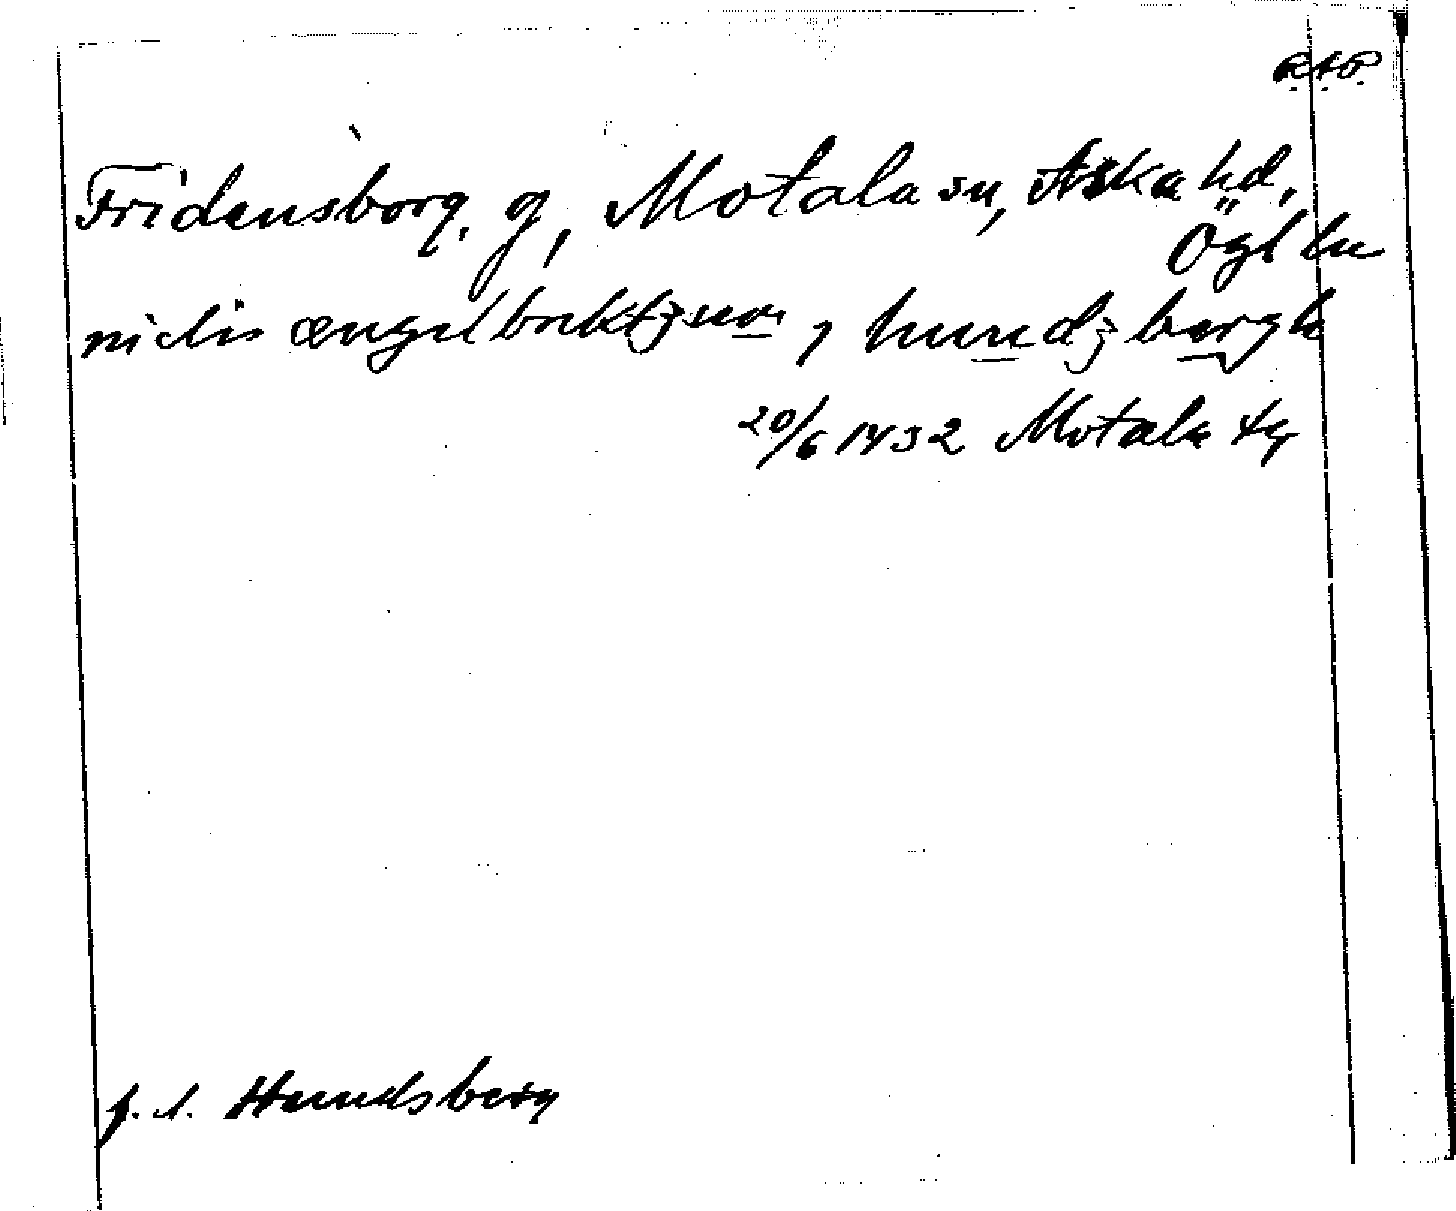 R.A.P.
Fridensborg, g, Motala sn, Aska hd,
Ögl län
niclis ængelbrektzson, hundzbergh
20/6 1432 Motala
f.d. Hundsberg